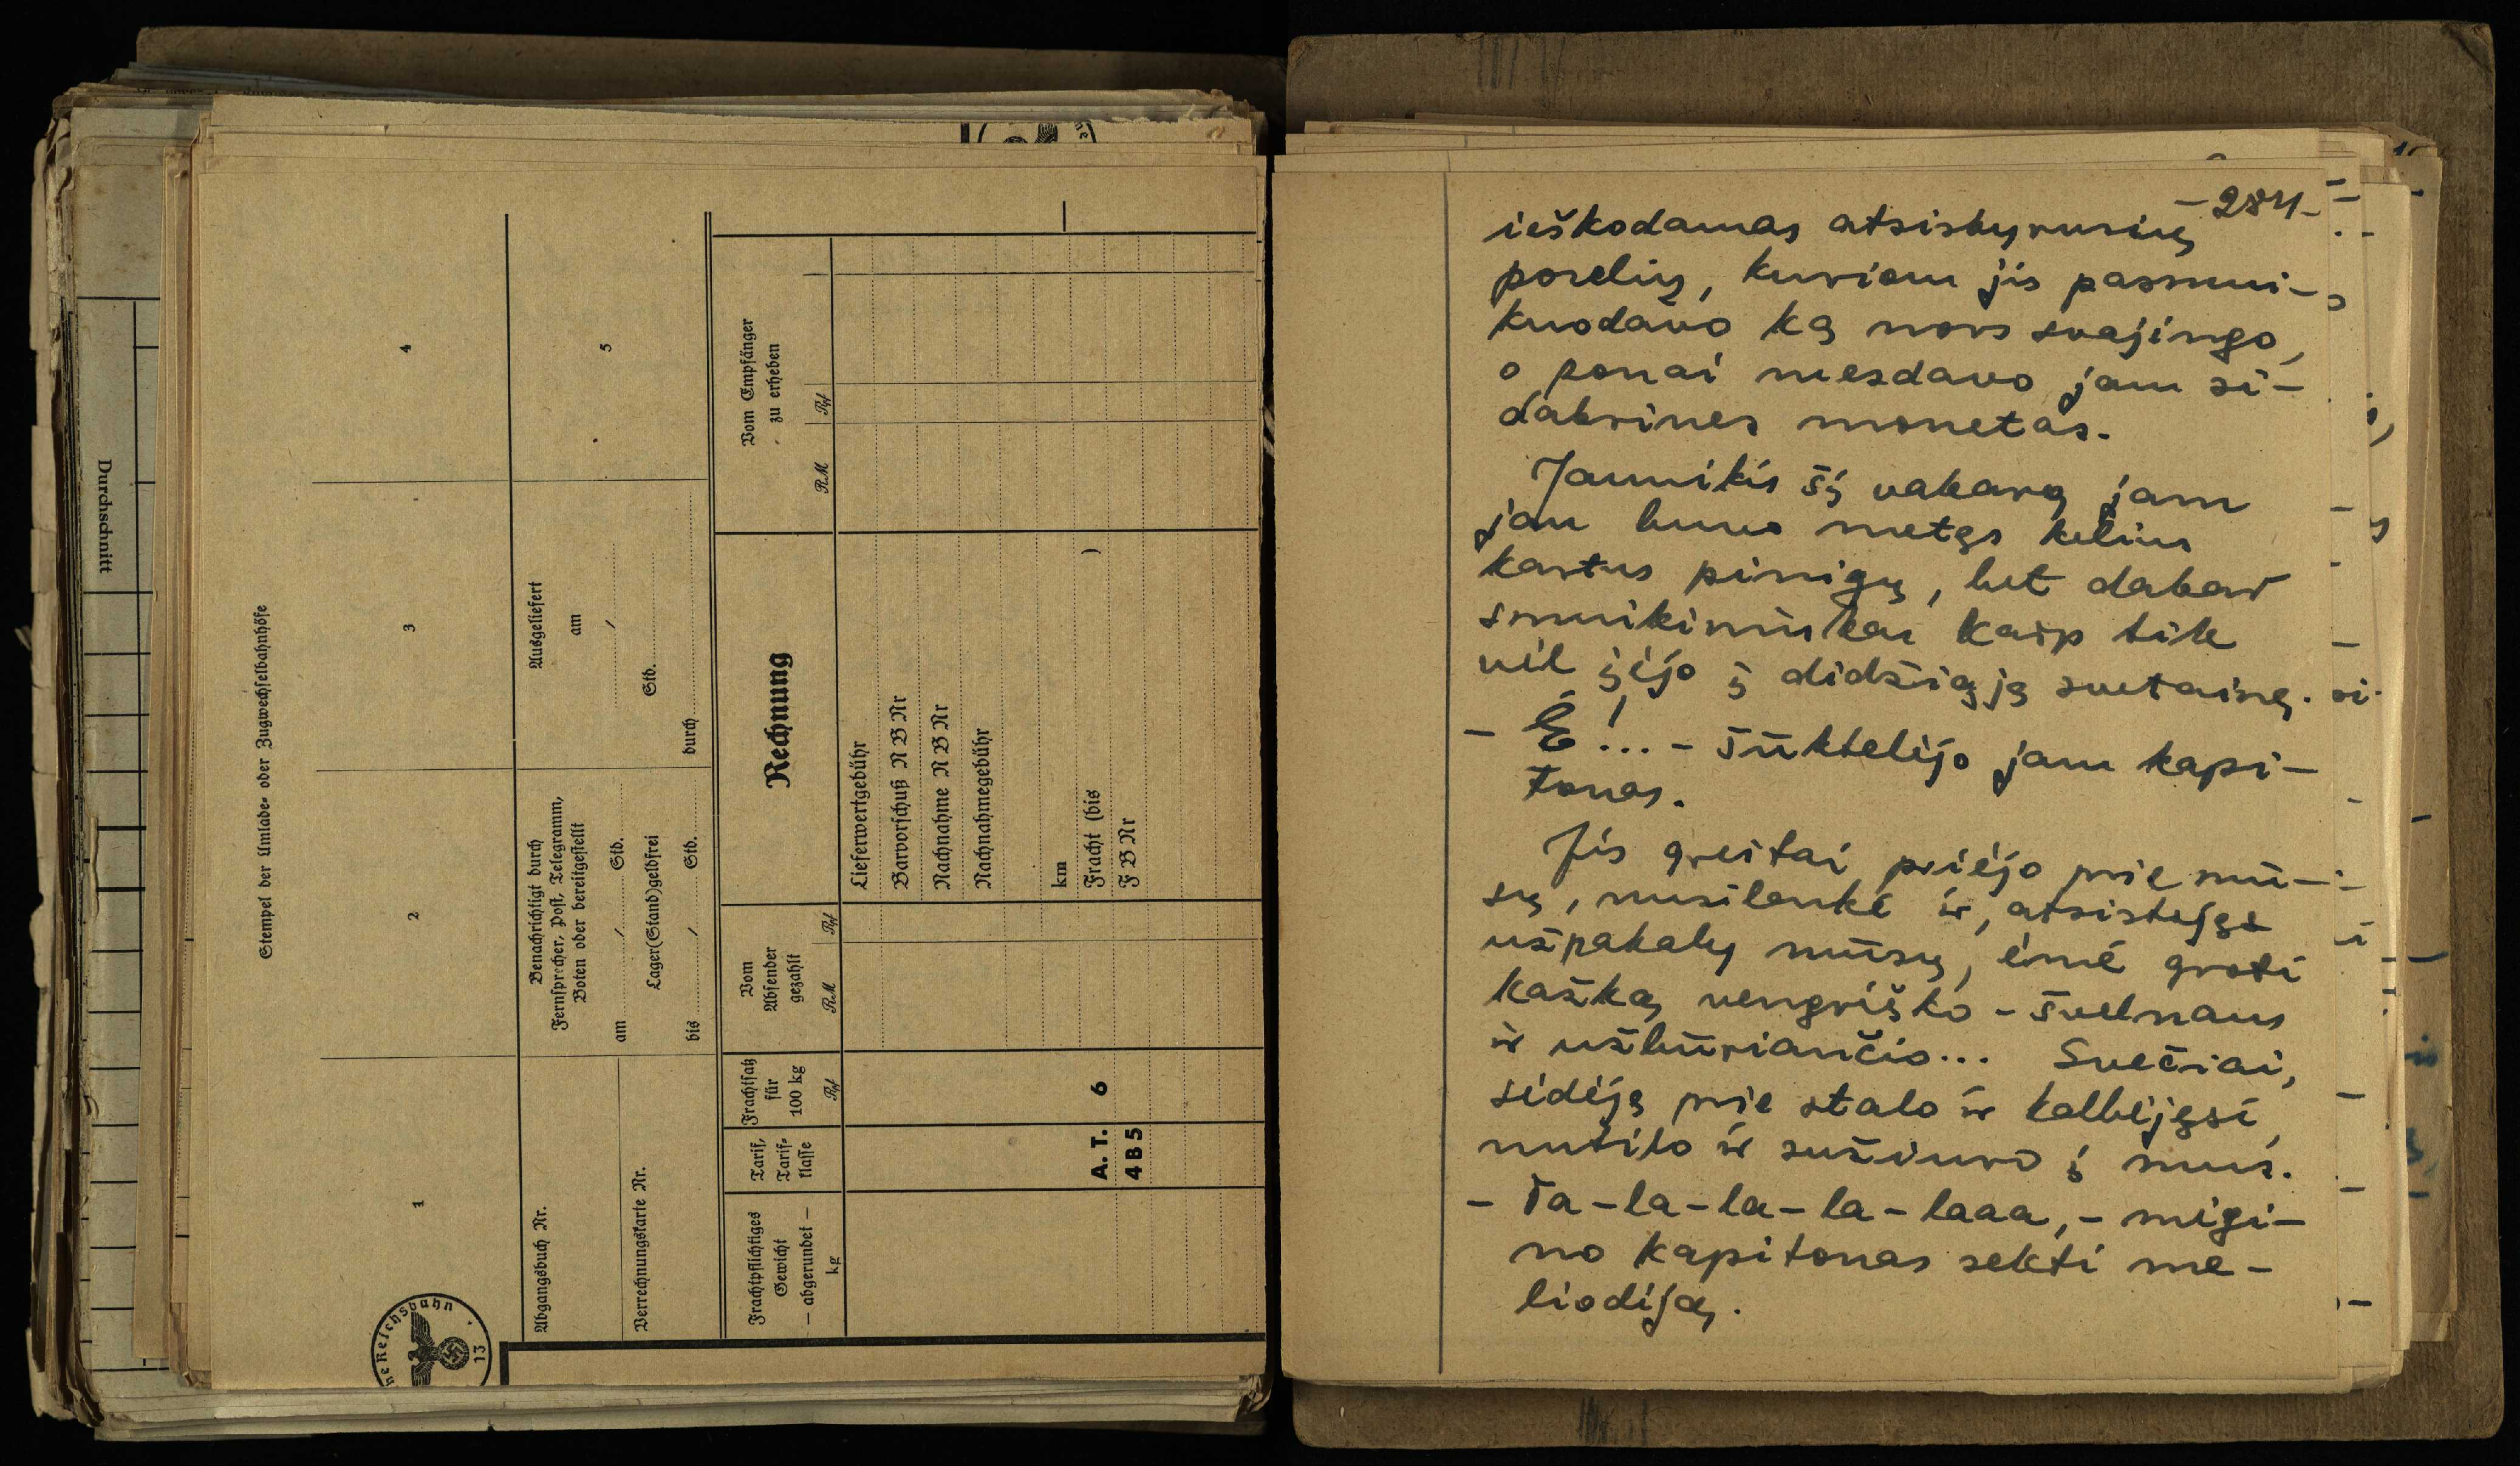 Durchschnitt
Stempel der Umlade- oder Zugwechselbahnhöfe
1
2
3
4
5
Abgangsbuch Nr.
Verrechnungskarte Nr.
Benachrichtigt durch
Fernsprecher, Post, Telegramm,
Boten oder bereitgestellt
am / Std.
Lager(Stand)geldfrei
bis / Std.
Ausgeliefert
am
/
Std.
durch
Frachtpflichtiges
Gewicht
— abgerundet —
kg
Tarif,
Tarif-
klasse
Frachtsatz
für
100 kg
Rpf
Vom
Absender
gezahlt
RM Rpf
Rechnung
Vom Empfänger
zu erheben
RM Rpf
Lieferwertgebühr
Barvorschuß N B Nr
Nachnahme N B Nr
Nachnahmegebühr
km
A. T. 6 Fracht (bis )
4 B 5 F B Nr
he Reichsbahn
13
-284-
ieškodamas atsiskyrusių
porelių, kuriom jis pasmui-
kuodavo ką nors svajingo,
o ponai mesdavo jam si-
dabrines monetas.
Jaunikis šį vakarą jam
jau buvo metęs kelius
kartus pinigų, bet dabar
smuikininkas kaip tik
vėl įėjo į didžiąją svetainę.
- Ė!... - šūktelėjo jam kapi-
tonas.
Jis greitai priėjo prie mū-
sų, nusilenkė ir, atsistojęs
užpakaly mūsų, ėmė groti
kažką vengriško - švelnaus
ir užburiančio... Svečiai,
sėdėję prie stalo ir kalbėjęsi,
nutilo ir sužiuro į mus.
- Ta-la-la-la-laaa, - mėgi-
no kapitonas sekti me-
liodiją.